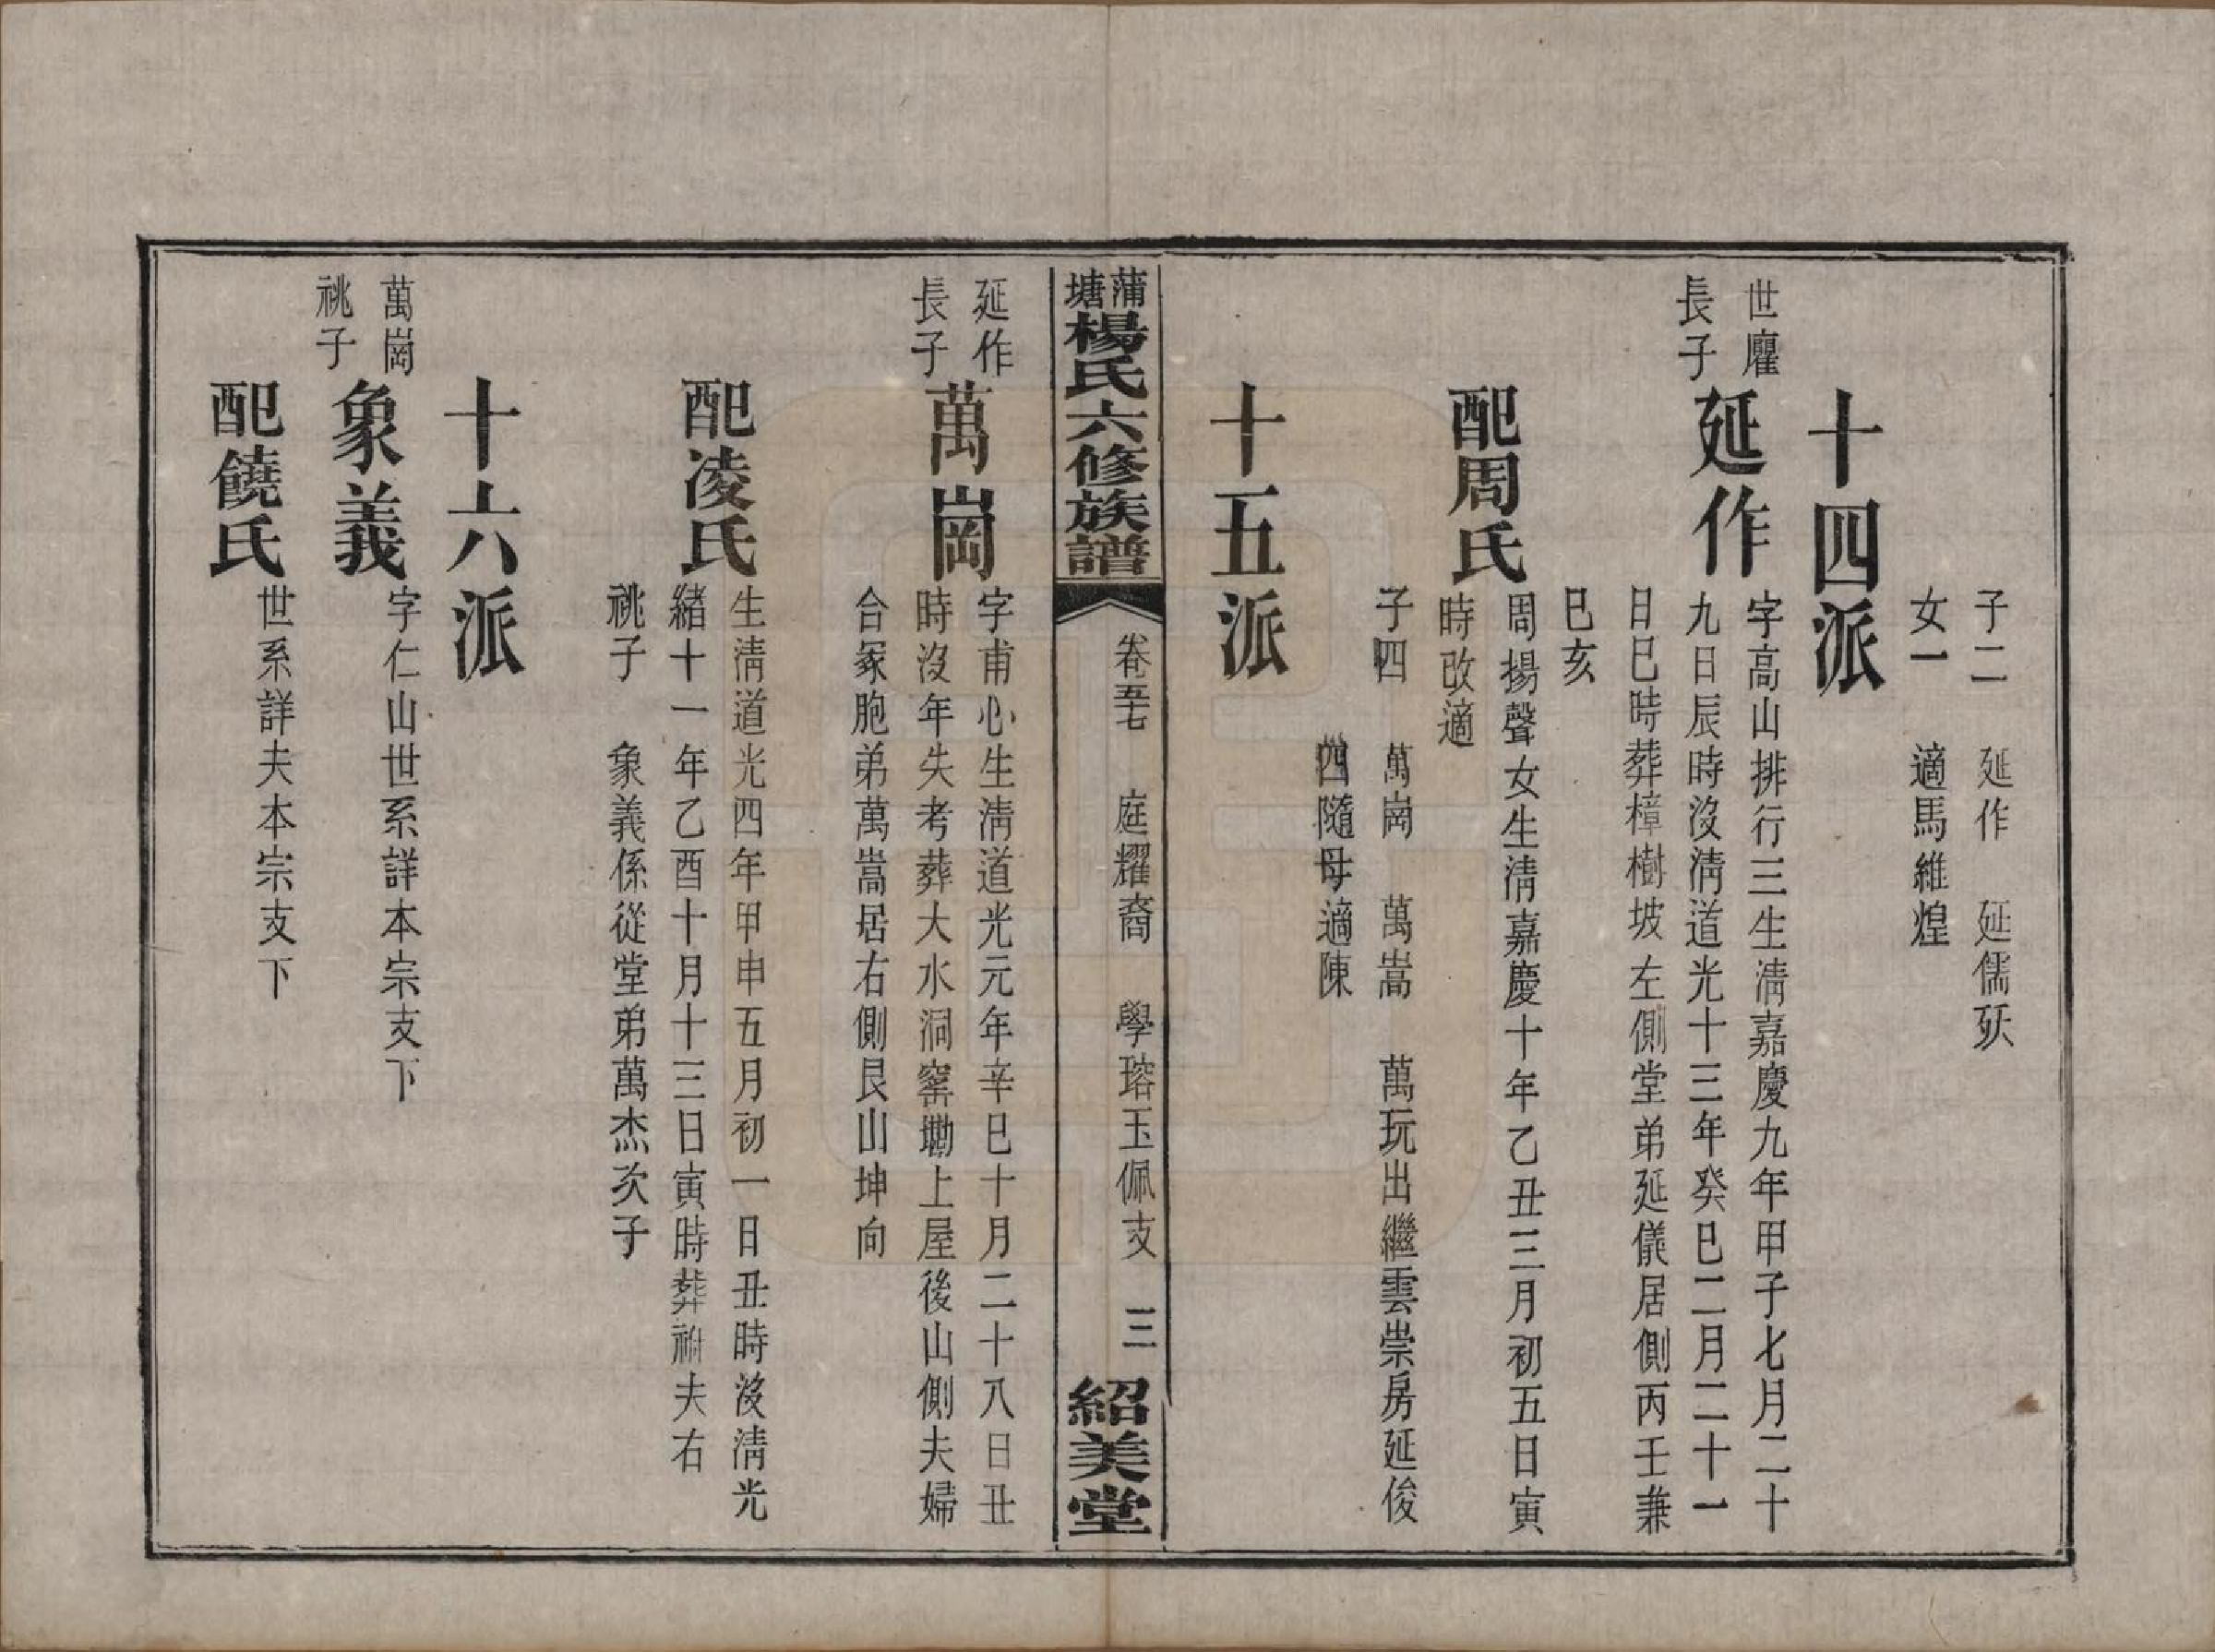 子二　延作　延儒殀
女一　適馬維煌
十四派
世龎
長子
延作
字高山排行三生淸嘉慶九年甲子七月二十
九日辰時沒淸道光十三年癸巳二月二十一
日巳時葬樟樹坡左側堂弟延儀居側丙壬兼
巳亥
配周氏
周揚聲女生淸嘉慶十年乙丑三月初五日寅
時改適
子四　萬崗　萬嵩　萬玩出繼雲崇房延俊
四隨母適陳
十五派
蒲塘楊氏六修族譜　卷五七　庭耀裔　學瑢玉佩支　三　紹美堂
延作
長子
萬崗
字甫心生淸道光元年辛巳十月二十八日丑
時沒年失考葬大水洞窰墈上屋後山側夫婦
合冢胞弟萬嵩居右側艮山坤向
配凌氏
生淸道光四年甲申五月初一日丑時沒淸光
緒十一年乙酉十月十三日寅時葬祔夫右
祧子　象義係從堂弟萬杰次子
十六派
萬崗
祧子
象義
字仁山世系詳本宗支下
配饒氏
世系詳夫本宗支下